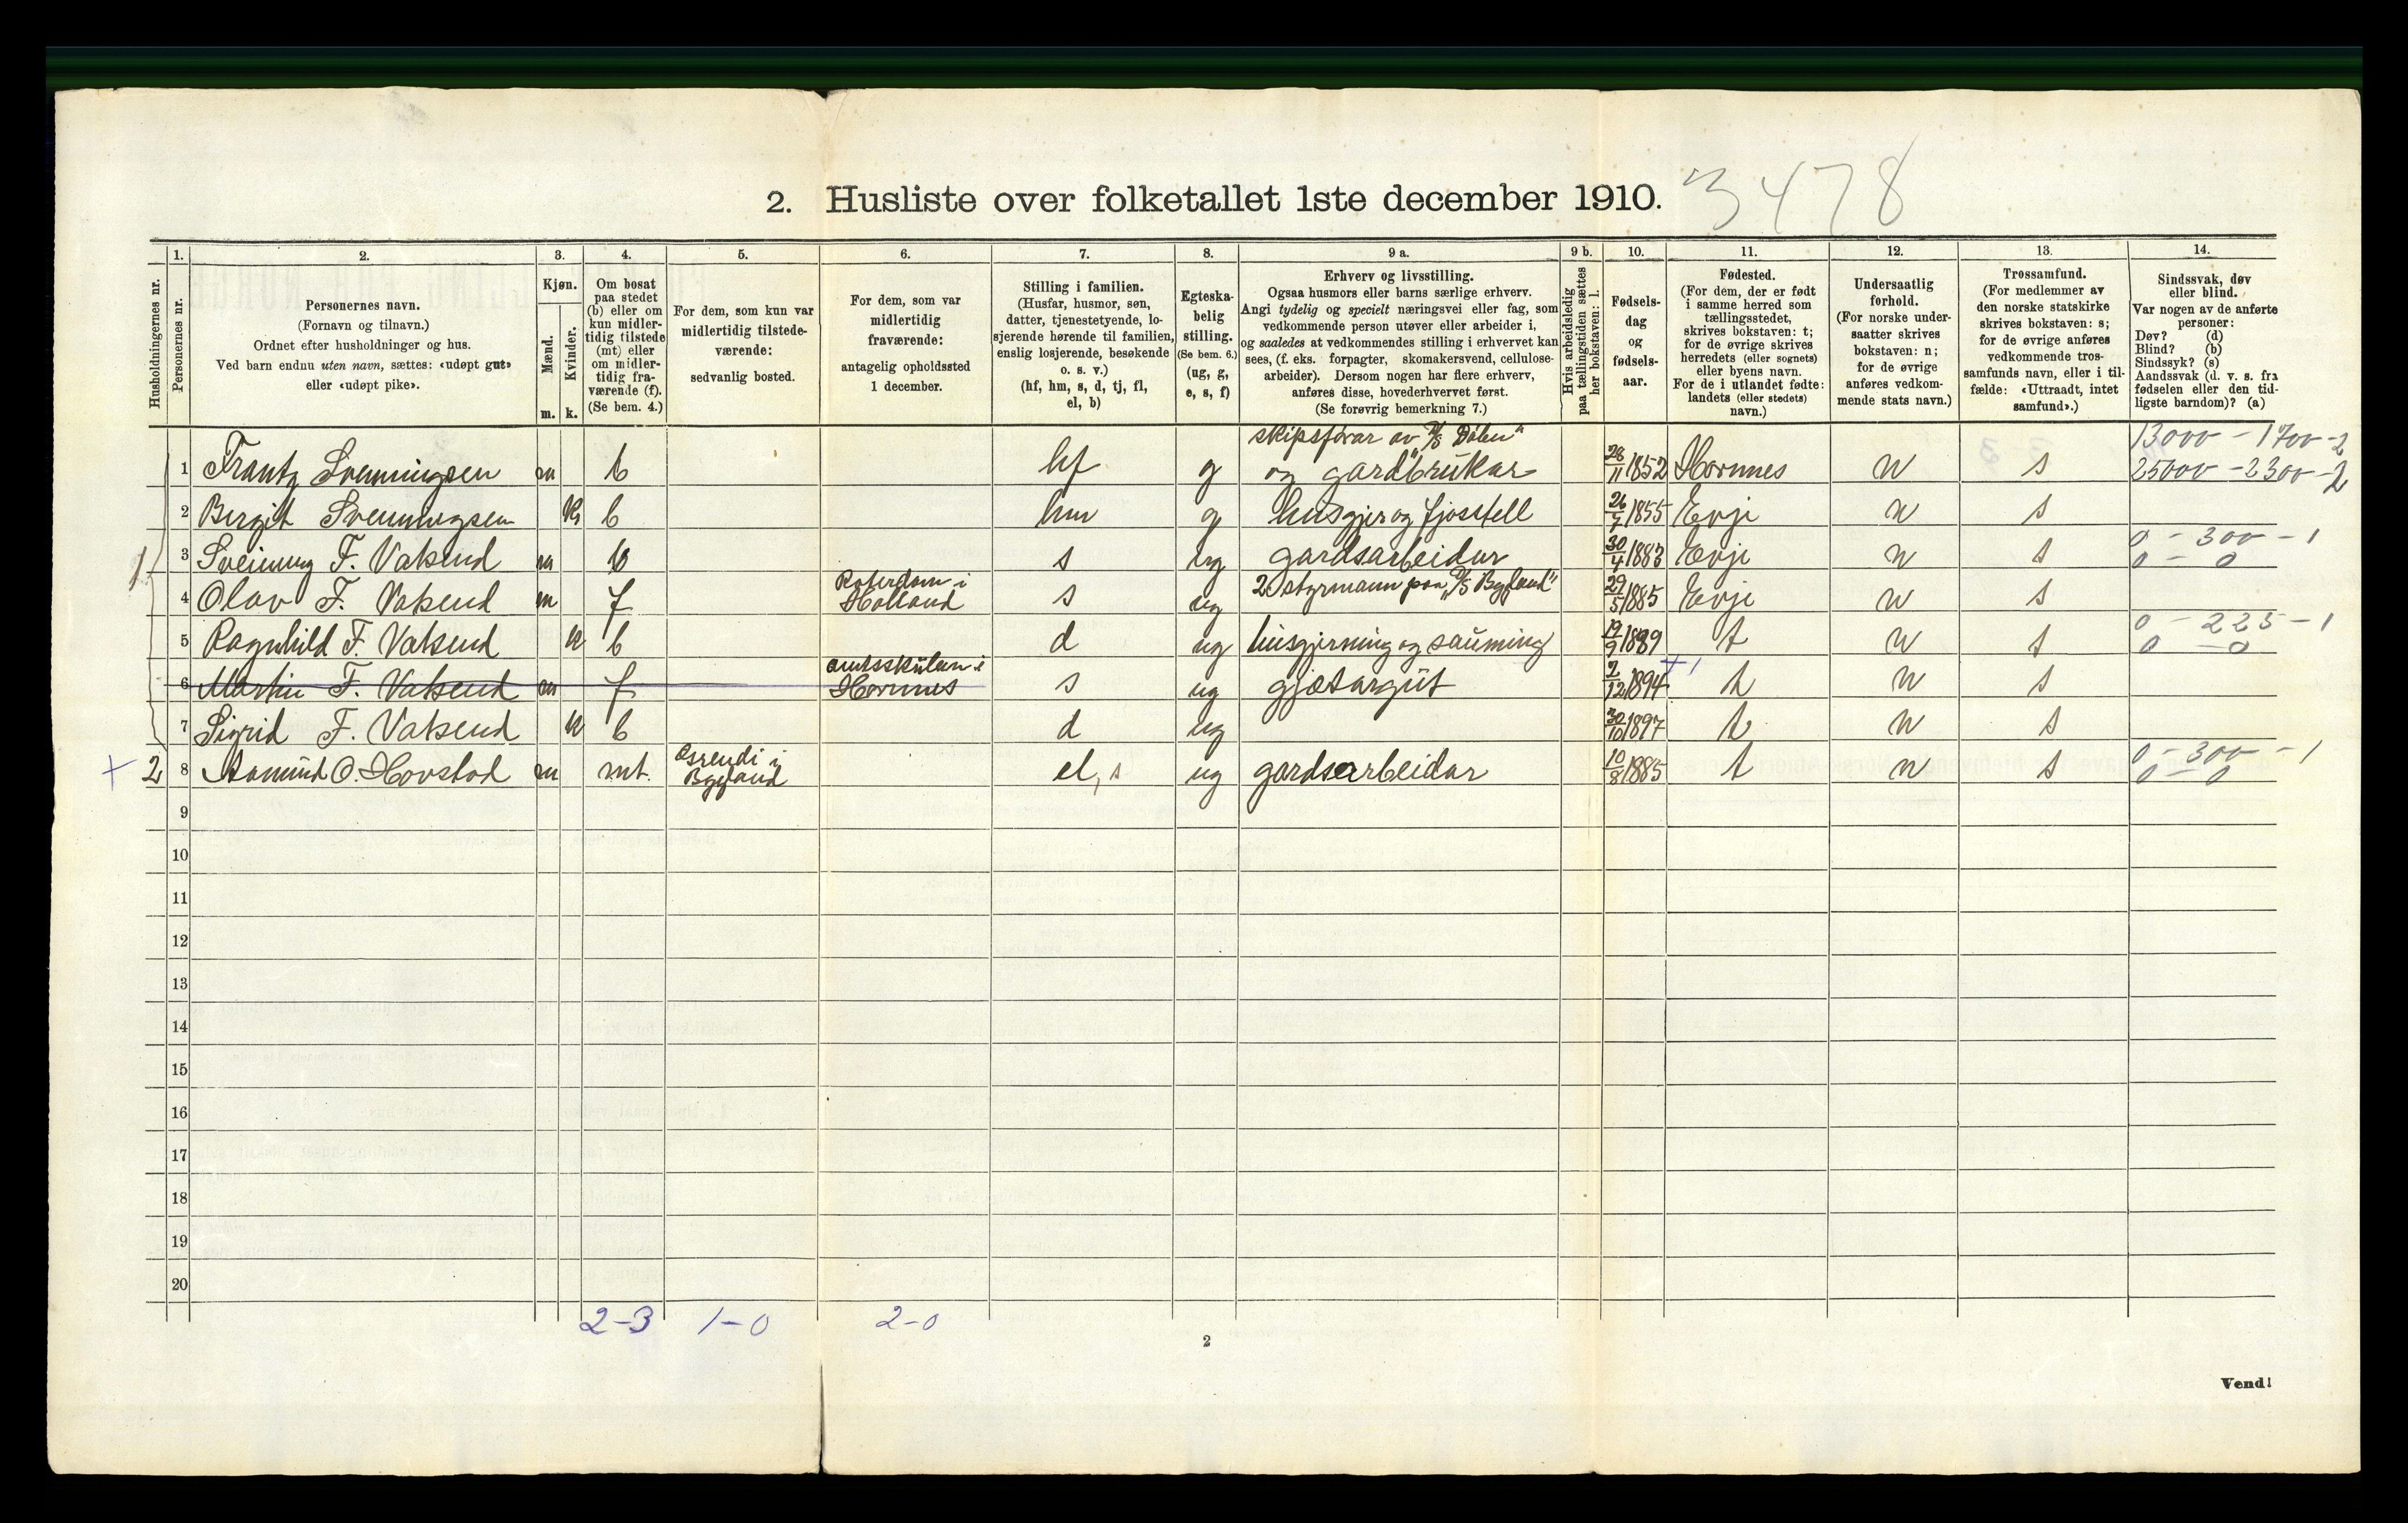 2. Husliste over folketallet 1ste december 1910. 3478
Husholdningernes nr.
1.
Personernes nr.
2.
Personernes navn.
(Fornavn og tilnavn.)
Ordnet efter husholdninger og hus.
Ved barn endnu uten navn, sættes: «udøpt gut»
eller «udøpt pike».
3.
Kjøn.
Mænd.
Kvinder.
m. k.
4.
Om bosat
paa stedet
(b) eller om
kun midler-
tidig tilstede
(mt) eller
om midler-
tidig fra-
værende (f).
(Se bem. 4.)
5.
For dem, som kun var
midlertidig tilstede-
værende:
sedvanlig bosted.
6.
For dem, som var
midlertidig
fraværende:
antagelig opholdssted
1 december.
7.
Stilling i familien.
(Husfar, husmor, søn,
datter, tjenestetyende, lo-
sjerende hørende til familien,
enslig losjerende, besøkende
o. s. v.)
(hf, hm, s, d, tj, fl,
el, b)
8.
Egteska-
belig
stilling.
(Se bem. 6.)
(ug, g,
e, s, f)
9 a.
Erhverv og livsstilling.
Ogsaa husmors eller barns særlige erhverv.
Angi tydelig og specielt næringsvei eller fag, som
vedkommende person utøver eller arbeider i,
og saaledes at vedkommendes stilling i erhvervet kan
sees, (f. eks. forpagter, skomakersvend, cellulose-
arbeider). Dersom nogen har flere erhverv,
anføres disse, hovederhvervet først.
(Se forøvrig bemerkning 7.)
9 b.
Hvis arbeidsledig
paa tællingstiden sættes
her bokstaven: l.
10.
Fødsels-
dag
og
fødsels-
aar.
11.
Fødested.
(For dem, der er født
i samme herred som
tællingsstedet,
skrives bokstaven: t;
for de øvrige skrives
herredets (eller sognets)
eller byens navn.
For de i utlandet fødte:
landets (eller stedets)
navn.)
12.
Undersaatlig
forhold.
(For norske under-
saatter skrives
bokstaven: n;
for de øvrige
anføres vedkom-
mende stats navn.)
13.
Trossamfund.
(For medlemmer av
den norske statskirke
skrives bokstaven: s;
for de øvrige anføres
vedkommende tros-
samfunds navn, eller i til-
fælde: «Uttraadt, intet
samfund».)
14.
Sindssvak, døv
eller blind.
Var nogen av de anførte
personer:
Døv? (d)
Blind? (b)
Sindssyk? (s)
Aandssvak (d. v. s. fra
fødselen eller den tid-
ligste barndom)? (a)
skipsförar av D/S "Dölen" 13000 - 1700 - 2
1 Frantz Svenningsen m b hf g og gardbrukar 28/11 1852 Hornnes n s 25000 - 2300 - 2
2 Bergit Svenningsen k b hm g husgjer og fjosstell 26/7 1855 Evje n s
0 - 300 - 1
1 3 Sveinung F. Vatsend m b s ug gardsarbeidar 30/4 1883 Evje n s 0 - 0
Roterdam i
4 Olav F. Vatsend m f Holland s ug 2 styrmann paa D/S "Bygland" 29/5 1885 Evje n s
0 - 225 - 1
5 Ragnhild F. Vatsend k b d ug husgjerning og sauming 19/9 1889 t n s 0 - 0
amtsskulen i + 1
6 Martin F. Vatsend m f Hornnes s ug gjætargut 2/12 1894 t n s
7 Sigrid F. Vatsend k b d ug 30/10 1897 t n s
Osrendi i 0 - 300 - 1
+ 2 8 Aamund O. Hovstad m mt. Bygland el, s ug gardsarbeidar 10/8 1885 t n s 0 - 0
9
10
11
12
13
14
15
16
17
18
19
20
2-3 1-0 2-0
2
Vend!